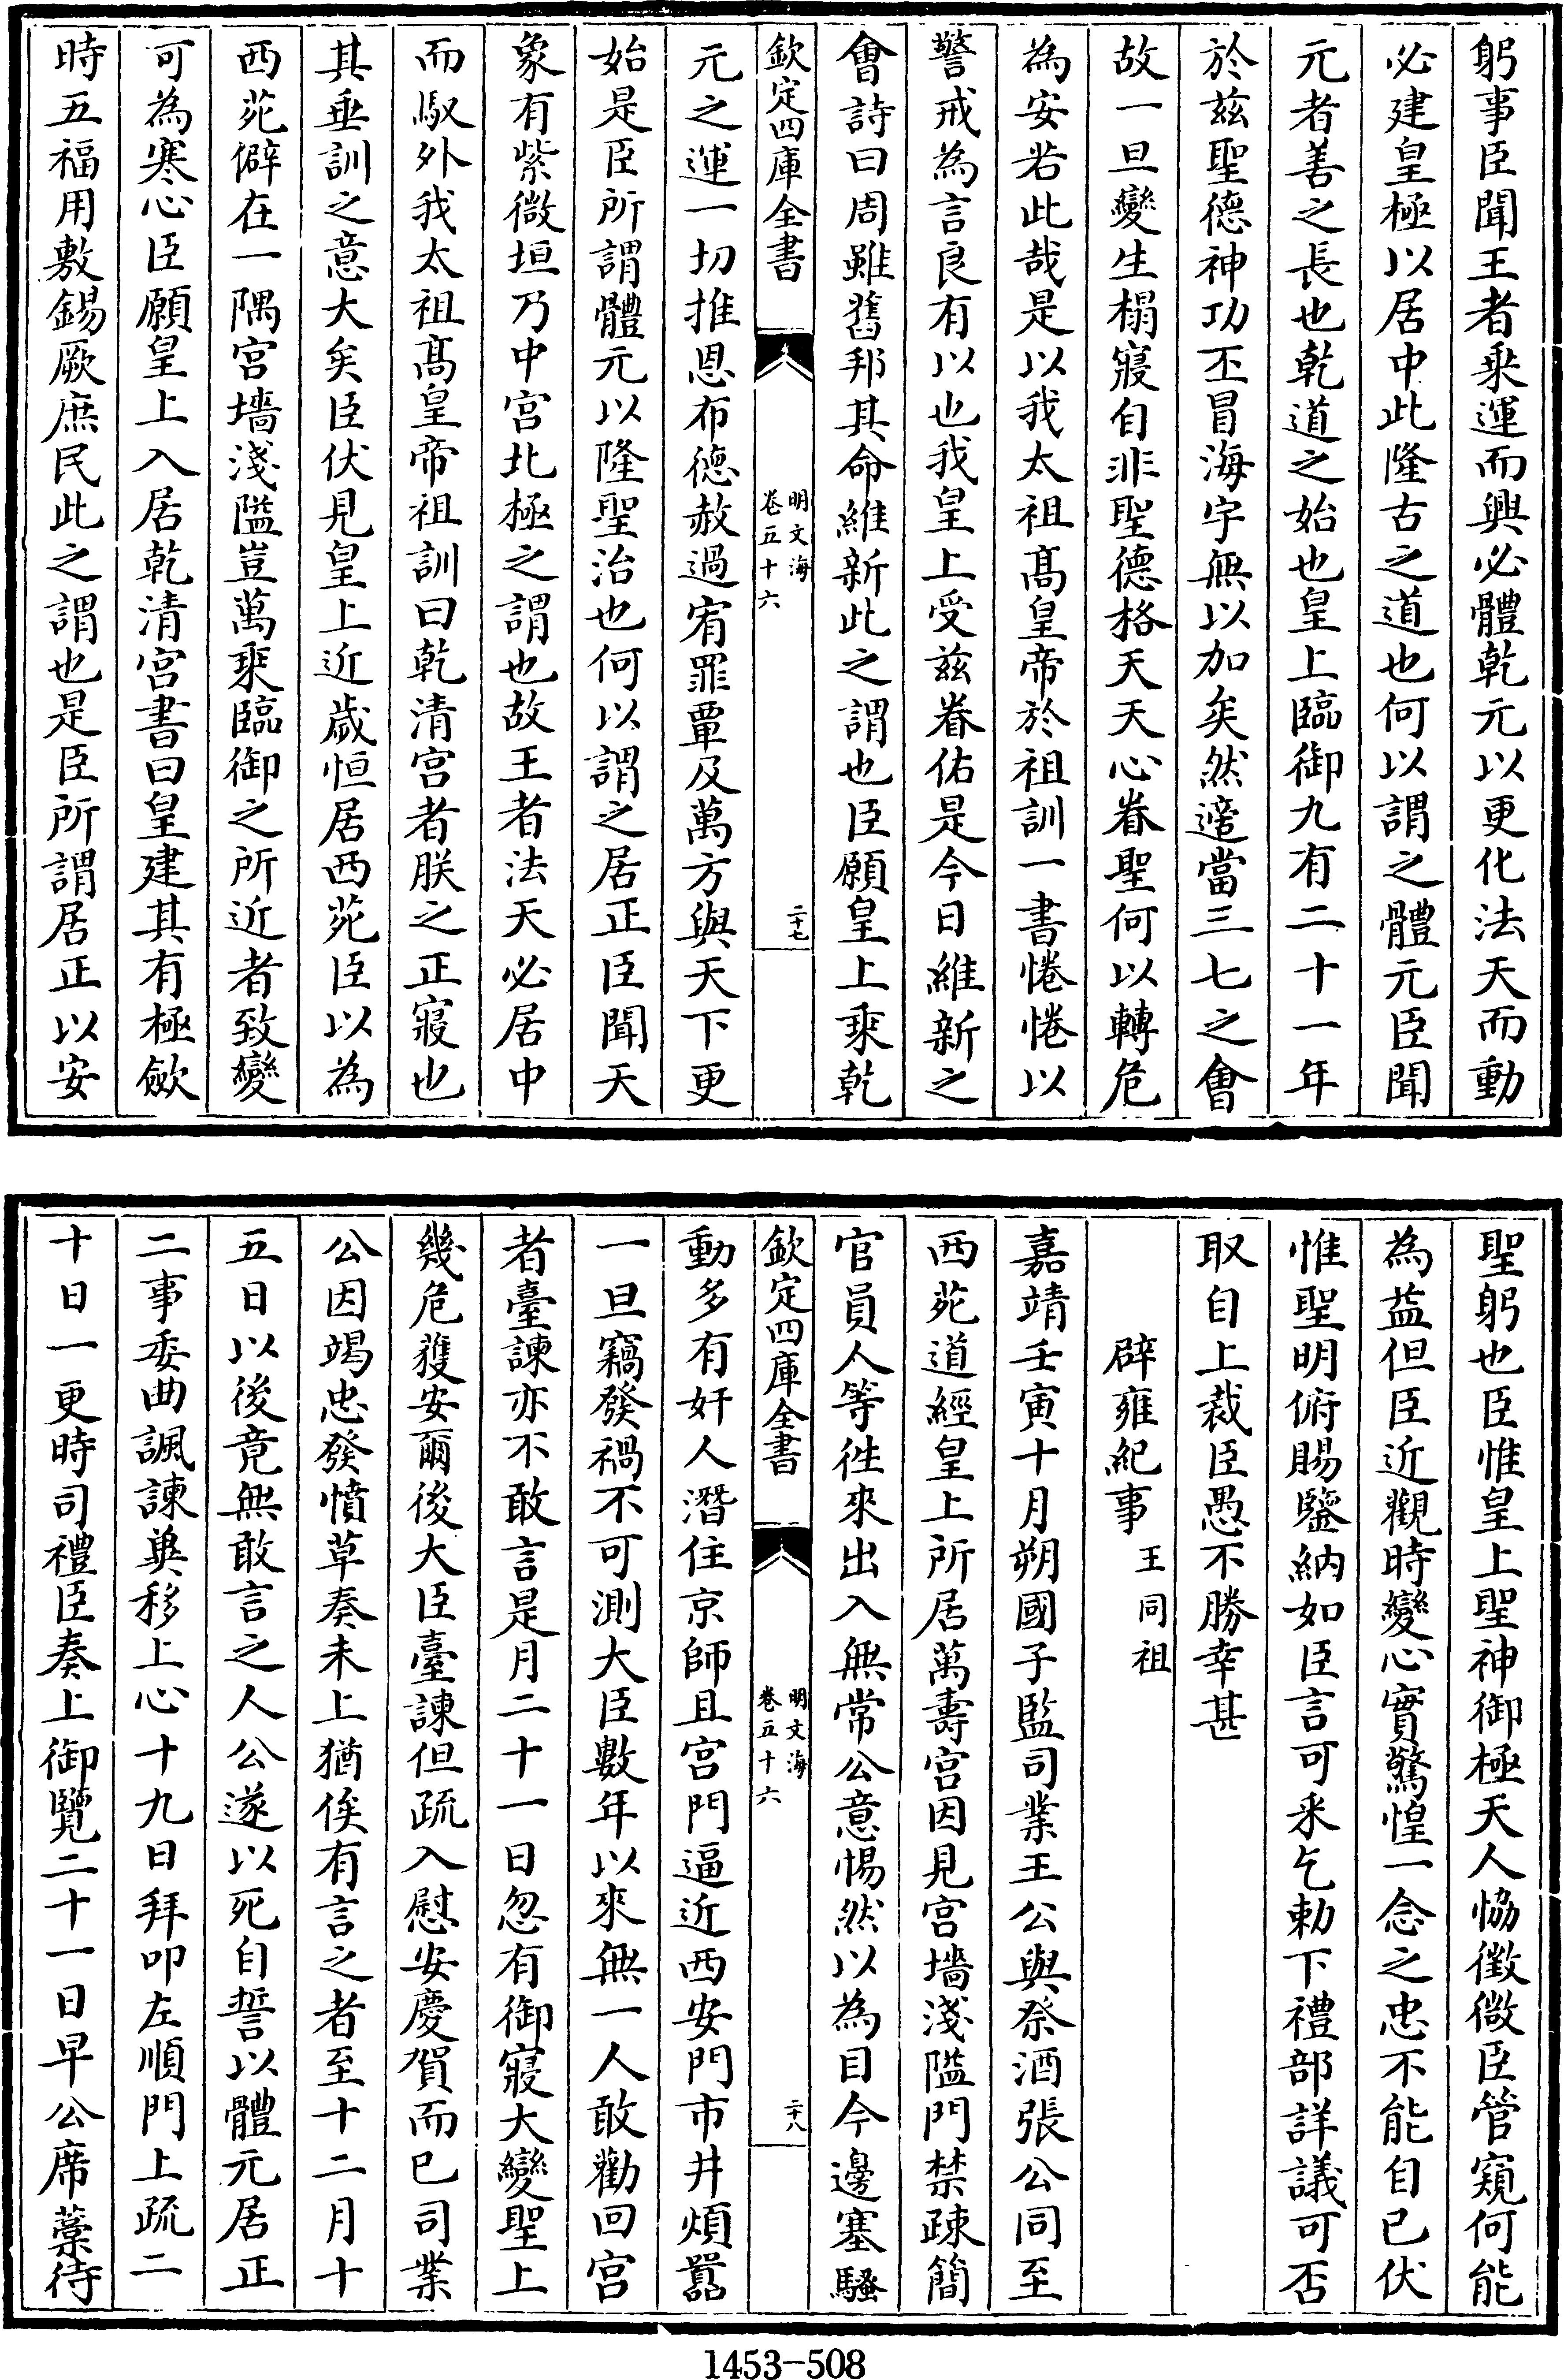 躬事臣聞王者乘運而興必體乾元以更化法天而動
必建皇極以居中此隆古之道也何以謂之體元臣聞
元者善之長也乾道之始也皇上臨御九有二十一年
於兹聖德神功丕冒海宇無以加矣然適當三七之會
故一旦變生榻寢自非聖德格天天心眷聖何以轉危
為安若此哉是以我太祖髙皇帝於祖訓一書惓惓以
警戒為言良有以也我皇上受兹眷佑是今日維新之
會詩曰周雖舊邦其命維新此之謂也臣願皇上乘乾
欽定四庫全書
明文海
卷五十六
二十七
元之運一切推恩布德赦過宥罪覃及萬方與天下更
始是臣所謂體元以隆聖治也何以謂之居正臣聞天
象有紫微垣乃中宫北極之謂也故王者法天必居中
而馭外我太祖髙皇帝祖訓曰乾清宫者朕之正寢也
其垂訓之意大矣臣伏見皇上近歲恒居西苑臣以為
西苑僻在一隅宫墻淺隘豈萬乘臨御之所近者致變
可為寒心臣願皇上入居乾清宫書曰皇建其有極斂
時五福用敷錫厥庶民此之謂也是臣所謂居正以安
聖躬也臣惟皇上聖神御極天人恊徵微臣管窺何能
為益但臣近觀時變心實驚惶一念之忠不能自已伏
惟聖明俯賜鑒納如臣言可采乞勅下禮部詳議可否
取自上裁臣愚不勝幸甚
辟雍紀事 王同祖
嘉靖壬寅十月朔國子監司業王公與祭酒張公同至
西苑道經皇上所居萬壽宫因見宫墻淺隘門禁疎簡
官員人等徃來出入無常公意惕然以為目今邊塞騷
欽定四庫全書
明文海
卷五十六
二十八
動多有奸人潛住京師且宫門逼近西安門市井煩囂
一旦竊發禍不可測大臣數年以來無一人敢勸回宫
者臺諫亦不敢言是月二十一日忽有御寢大變聖上
幾危獲安爾後大臣臺諫但疏入慰安慶賀而已司業
公因竭忠發憤草奏未上猶俟有言之者至十二月十
五日以後竟無敢言之人公遂以死自誓以體元居正
二事委曲諷諫兾移上心十九日拜叩左順門上疏二
十日一更時司禮臣奏上御覽二十一日早公席藁待
1453-508